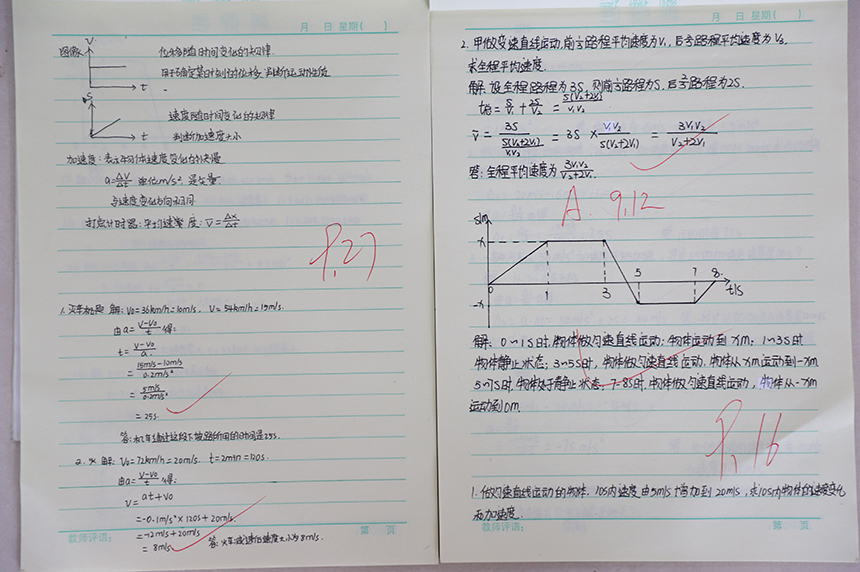 月 日 星期( )
图像
V
位移随时间变化的规律
t
S
速度随时间变化的规律
t
判断加速度大小
加速度:表示物体速度变化的快慢
a=ΔV/Δt 单位m/s² 是矢量
与速度变化方向相同
打点计时器:平均速度:V̄=Δx/Δt
P.27
解:V₀=36km/h=10m/s, V=54km/h=15m/s.
由a=(V-V₀)/t得:
t=(V-V₀)/a
=(15m/s-10m/s)/0.2m/s²
=5m/s/0.2m/s²
=25s
答:汽车通过这段下坡路所用的时间是25s.
2. 解:V₀=72km/h=20m/s. t=2min=120s.
由a=(V-V₀)/t得:
V=at+V₀
=-0.1m/s²×120s+20m/s.
=-12m/s+20m/s
=8m/s
答:火车减速后速度大小为8m/s.
教师评语: 第 页
月 日 星期( )
求全程平均速度.
解:设全程路程为3S,则前⅓路程为S.后⅔路程为2S.
t总=S/V₁+2S/V₂=S(V₂+2V₁)/V₁V₂
V̄=3S/(S(V₂+2V₁)/V₁V₂)=3S×V₁V₂/S(V₂+2V₁)=3V₁V₂/(V₂+2V₁)
答:全程平均速度为3V₁V₂/(V₂+2V₁).
A. 9,12
s/m
x
5 7 8
0 1 3 t/s
-x
解:0~1S时,物体做匀速直线运动;物体运动到xm;1~3S时
物体静止状态;3~5S时,物体做匀速直线运动.物体从xm运动到-xm
5~7S时,物体处于静止状态.7-8S时.物体做匀速直线运动,物体从-xm
运动到0m.
P.16
1.作匀变速直线运动的物体.10S内速度由5m/s增加到20m/s,求10s内物体的速度变化
和加速度.
教师评语: 第 页